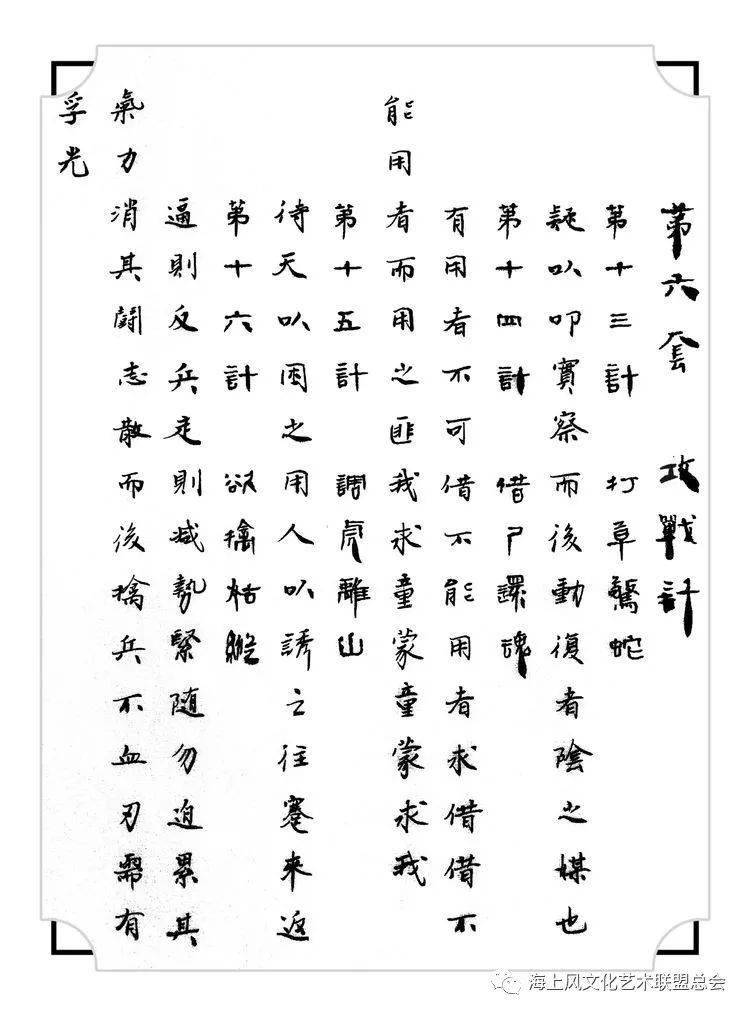 第六套 攻戰計
第十三計 打草驚蛇
疑以叩實察而後動復者陰之媒也
第十四計 借尸還魂
有用者不可借不能用者求借借不
能用者而用之匪我求童蒙童蒙求我
第十五計 調虎離山
待天以困之用人以誘之往蹇來返
第十六計 欲擒姑縱
逼則反兵走則減勢緊随勿迫累其
氣力消其鬪志散而後擒兵不血刃需有
孚光
海上风文化艺术联盟总会